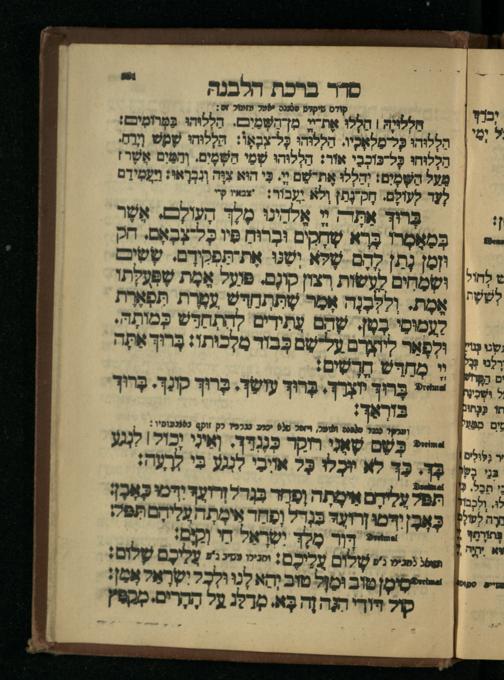 סדר ברכת הלבנה
קודם שיקדש הלבנה יאמר מזמור זה:
הַלְלוּיָהּ׀ הַלְלוּ אֶת־יְיָ מִן־הַשָּׁמַיִם. הַלְלוּהוּ בַּמְּרוֹמִים:
הַלְלוּהוּ כָל־מַלְאָכָיו. הַלְלוּהוּ כָּל־צְבָאָו: הַלְלוּהוּ שֶׁמֶשׁ וְיָרֵחַ.
הַלְלוּהוּ כָּל־כּוֹכְבֵי אוֹר: הַלְלוּהוּ שְׁמֵי הַשָּׁמָיִם. וְהַמַּיִם אֲשֶׁר׀
מֵעַל הַשָּׁמָיִם: יְהַלְלוּ אֶת־שֵׁם יְיָ. כִּי הוּא צִוָּה וְנִבְרָאוּ: וַיַּעֲמִידֵם
לָעַד לְעוֹלָם. חָק־נָתַן וְלֹא יַעֲבוֹר:
בָּרוּךְ אַתָּה יְיָ אֱלֹהֵינוּ מֶלֶךְ הָעוֹלָם. אֲשֶׁר
בְּמַאֲמָרוֹ בָּרָא שְׁחָקִים וּבְרוּחַ פִּיו כָּל־צְבָאָם. חֹק
וּזְמַן נָתַן לָהֶם שֶׁלֹּא יְשַׁנּוּ אֶת־תַּפְקִידָם. שָׂשִׂים
וּשְׂמֵחִים לַעֲשׂוֹת רְצוֹן קוֹנָם. פּוֹעֵל אֱמֶת שֶׁפְּעֻלָּתוֹ
אֱמֶת. וְלַלְּבָנָה אָמַר שֶׁתִּתְחַדֵּשׁ עֲטֶרֶת תִּפְאֶרֶת
לַעֲמוּסֵי בָטֶן. שֶׁהֵם עֲתִידִים לְהִתְחַדֵּשׁ כְּמוֹתָהּ.
וּלְפָאֵר לְיוֹצְרָם עַל־שֵׁם כְּבוֹד מַלְכוּתוֹ: בָּרוּךְ אַתָּה
יְיָ מְחַדֵּשׁ חֳדָשִׁים:
Dreimal בָּרוּךְ יוֹצְרֵךְ. בָּרוּךְ עוֹשֵׂךְ. בָּרוּךְ קוֹנֵךְ. בָּרוּךְ
בּוֹרְאֵךְ:
Dreimal כְּשֵׁם שֶׁאֲנִי רוֹקֵד כְּנֶגְדֵּךְ. וְאֵינִי יָכוֹל׀ לִנְגֹּעַ
בָּךְ. כָּךְ לֹא יוּכְלוּ כָּל אוֹיְבַי לִנְגֹּעַ בִּי לְרָעָה:
Dreimal תִּפֹּל עֲלֵיהֶם אֵימָתָה וָפַחַד בִּגְדֹל זְרוֹעֲךָ יִדְּמוּ כָּאָבֶן:
כָּאָבֶן יִדְּמוּ זְרוֹעֲךָ בִּגְדֹל וָפַחַד אֵימָתָה עֲלֵיהֶם תִּפֹּל:
Dreimal דָּוִד מֶלֶךְ יִשְׂרָאֵל חַי וְקַיָּם:
שָׁלוֹם עֲלֵיכֶם: עֲלֵיכֶם שָׁלוֹם:
Dreimal סִימָן טוֹב וּמַזָּל טוֹב יְהֵא לָנוּ וּלְכָל יִשְׂרָאֵל אָמֵן:
קוֹל דּוֹדִי הִנֵּה זֶה בָּא. מְדַלֵּג עַל הֶהָרִים. מְקַפֵּץ